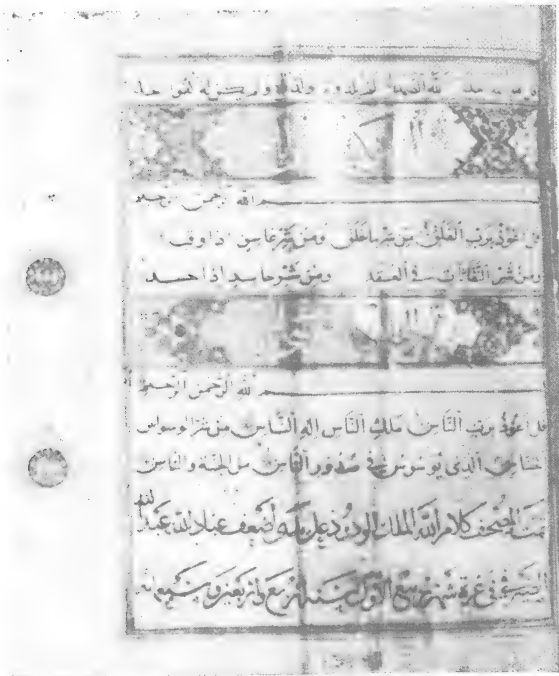 الله الصمد لم يلد و ولد و لم يكن له كفوا حد
الله الرحمن الرحيم
قل اعوذ برب الفلق من شر ما خلق ومن شر غاسق اذا وقب
ومن شر النفاثات في العقد ومن شر حاسد اذا حسد
لله الرحمن الرحيم
قل اعوذ برب الناس ملك الناس اله الناس من شر الوسواس
الخناس الذي يوسوس في صدور الناس من الجنة والناس
تمت المصحف كلام الله الملك الودود على يد أضعف عباد الله عبد الله
في غرة شهر ربيع الاول سنة اربع واربعين و